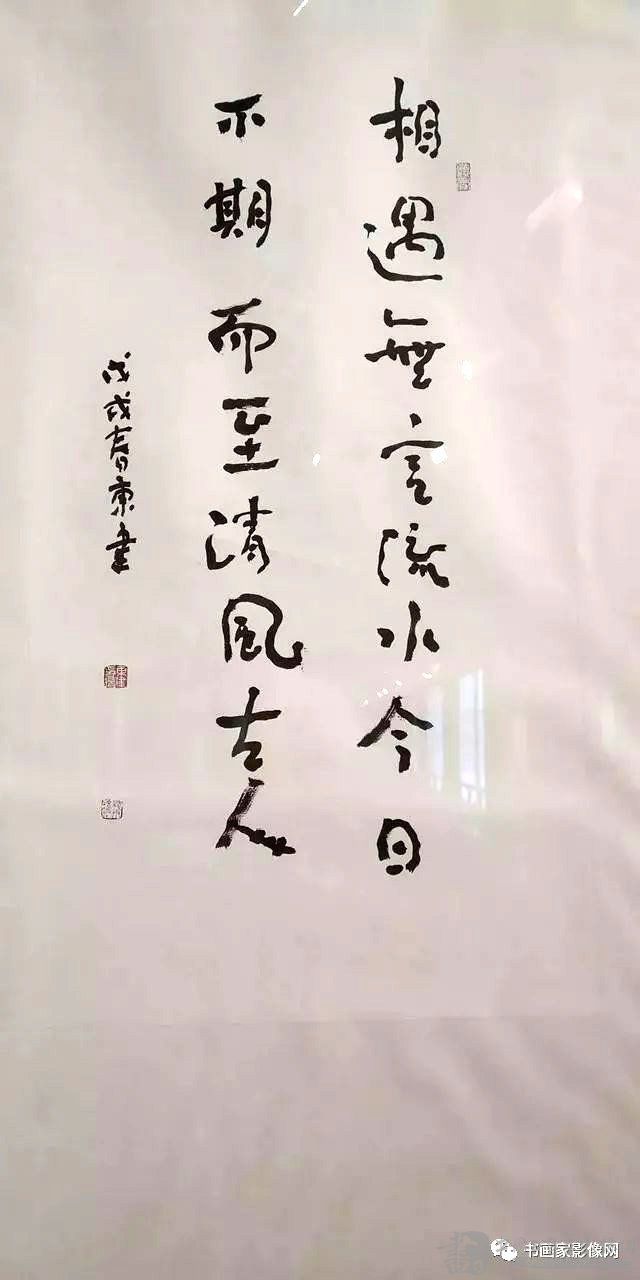 相遇無言流水今日
不期而至清風古人
戊戌春東書
书画家影像网